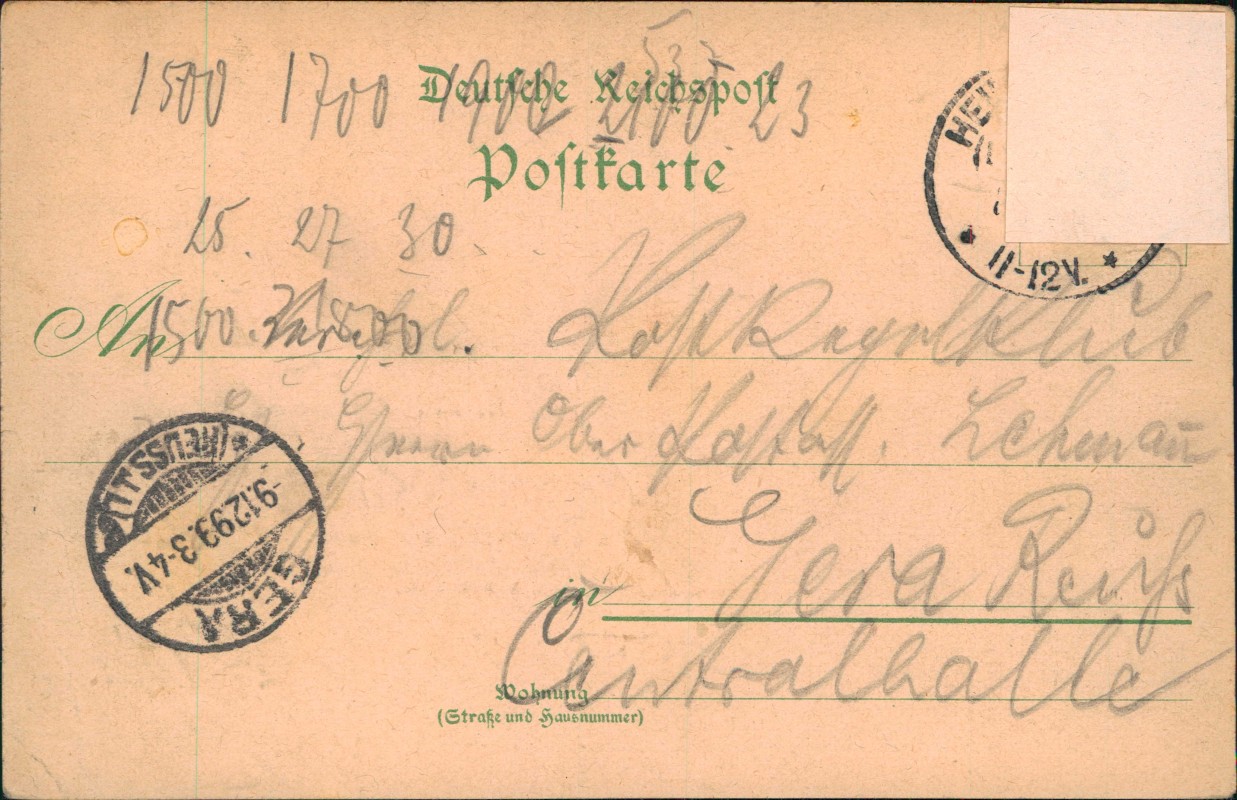 537
1500 1700 1900 2100 23
Deutsche Reichspost
Postkarte
25. 27 30
HE
11-12V.
An
1500.
Post Kegelklub
Herrn Ober Postass. Lehmann
in Gera Reuss
Centralhalle
Wohnung
(Straße und Hausnummer)
GERA
-9.12.99.3-4V.
(REUSS) J.L.